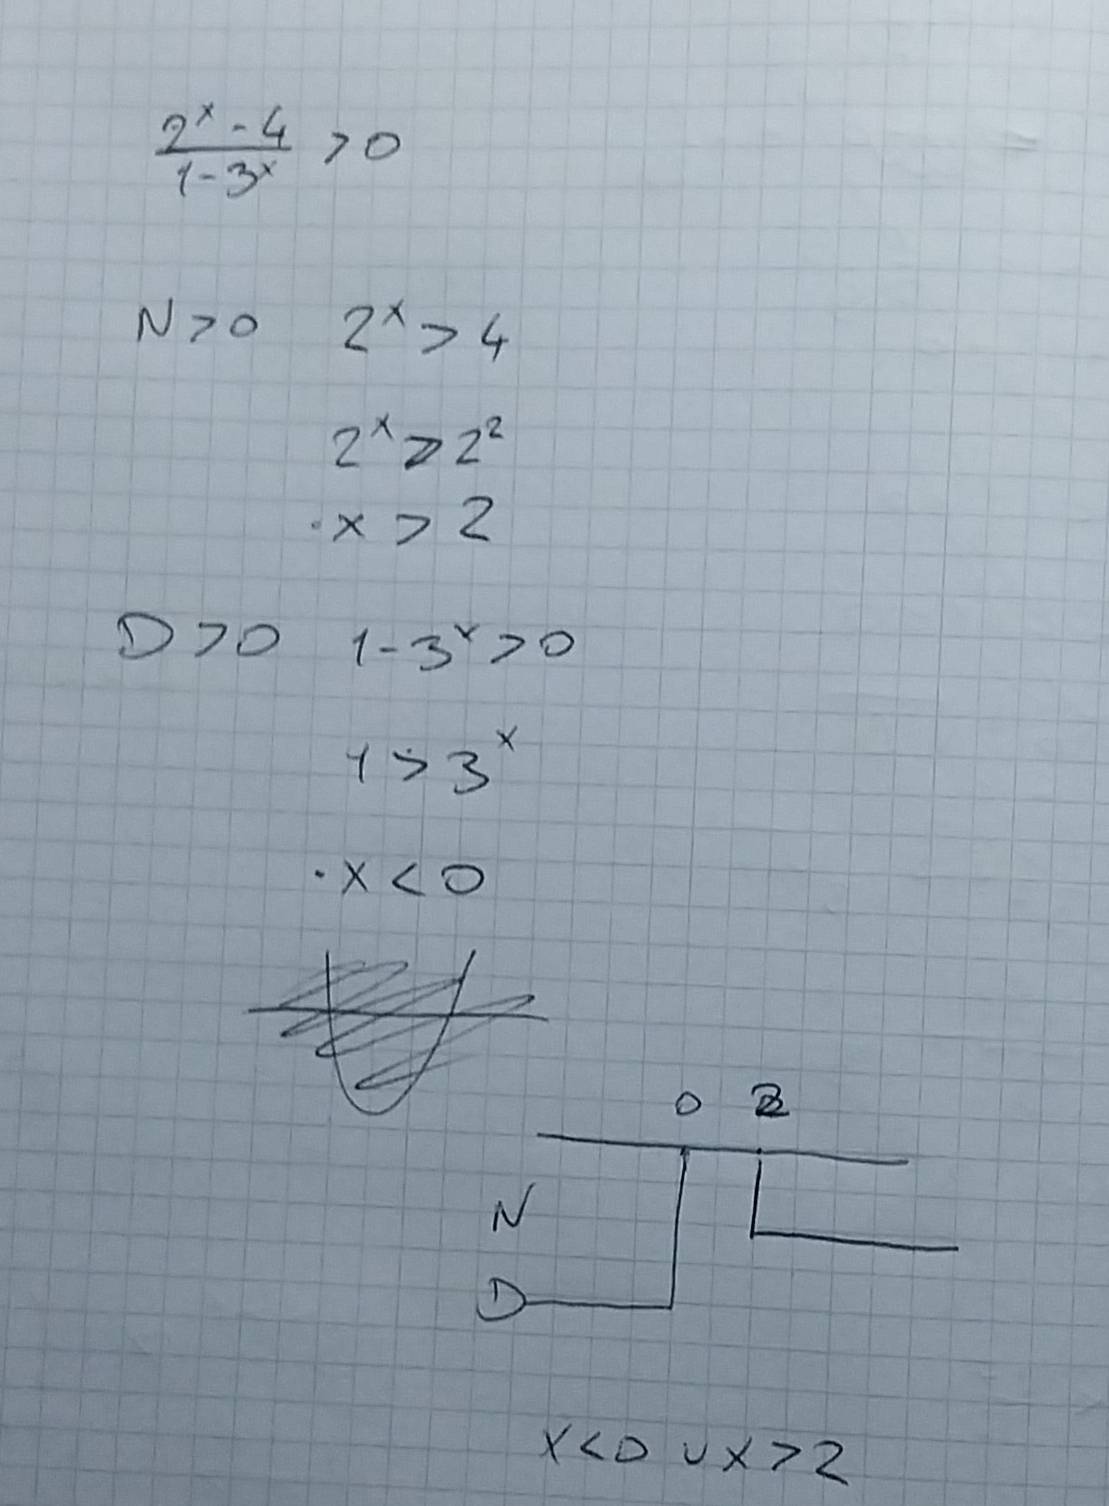 2^x - 4 / 1 - 3^x > 0
N > 0 2^x > 4
2^x > 2^2
· x > 2
D > 0 1 - 3^x > 0
1 > 3^x
· x < 0
0 2
N
D
x < 0 ∪ x > 2